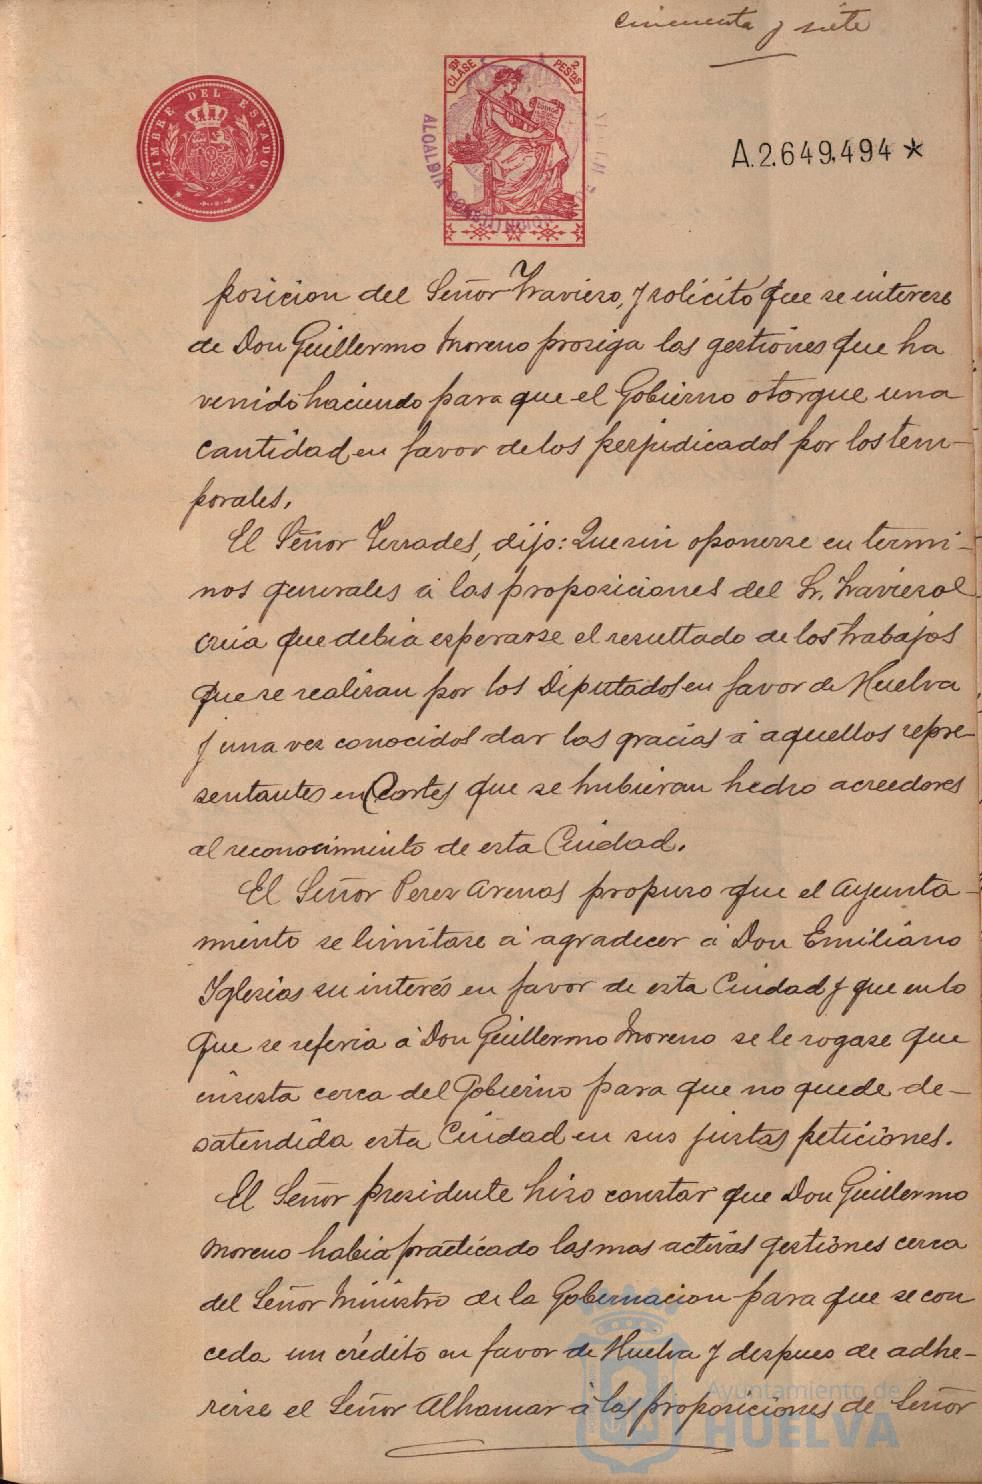 cincuenta y siete
TIMBRE DEL ESTADO
CLASE
2 PESTAS
ALCALDIA CONSTITUCIONAL
A.2.649.494 *
posicion del Señor Travieso, y solicitó que se interese
de Don Guillermo Moreno prosiga las gestiones que ha
venido haciendo para que el Gobierno otorgue una
cantidad en favor de los perjudicados por los tem-
porales.
El Señor Terrades, dijo: Que sin oponerse en termi-
nos generales á las proposiciones del Sr. Travieso
creia que debia esperarse el resultado de los trabajos
que se realizan por los Diputados en favor de Huelva
y una vez conocidos dar las gracias á aquellos repre-
sentantes en Cortes que se hubieran hecho acreedores
al reconocimiento de esta Ciudad.
El Señor Perez Arenas propuso que el Ayunta-
miento se limitase á agradecer á Don Emiliano
Iglesias su interés en favor de esta Ciudad y que en lo
que se referia á Don Guillermo Moreno se le rogase que
insista cerca del Gobierno para que no quede de-
satendida esta Ciudad en sus justas peticiones.
El Señor presidente hizo constar que Don Guillermo
Moreno habia practicado las mas activas gestiones cerca
del Señor Ministro de la Gobernacion para que se con
ceda un crédito en favor de Huelva y despues de adhe-
rirse el Señor Alhamar á las proposiciones de Señor
Ayuntamiento de
HUELVA